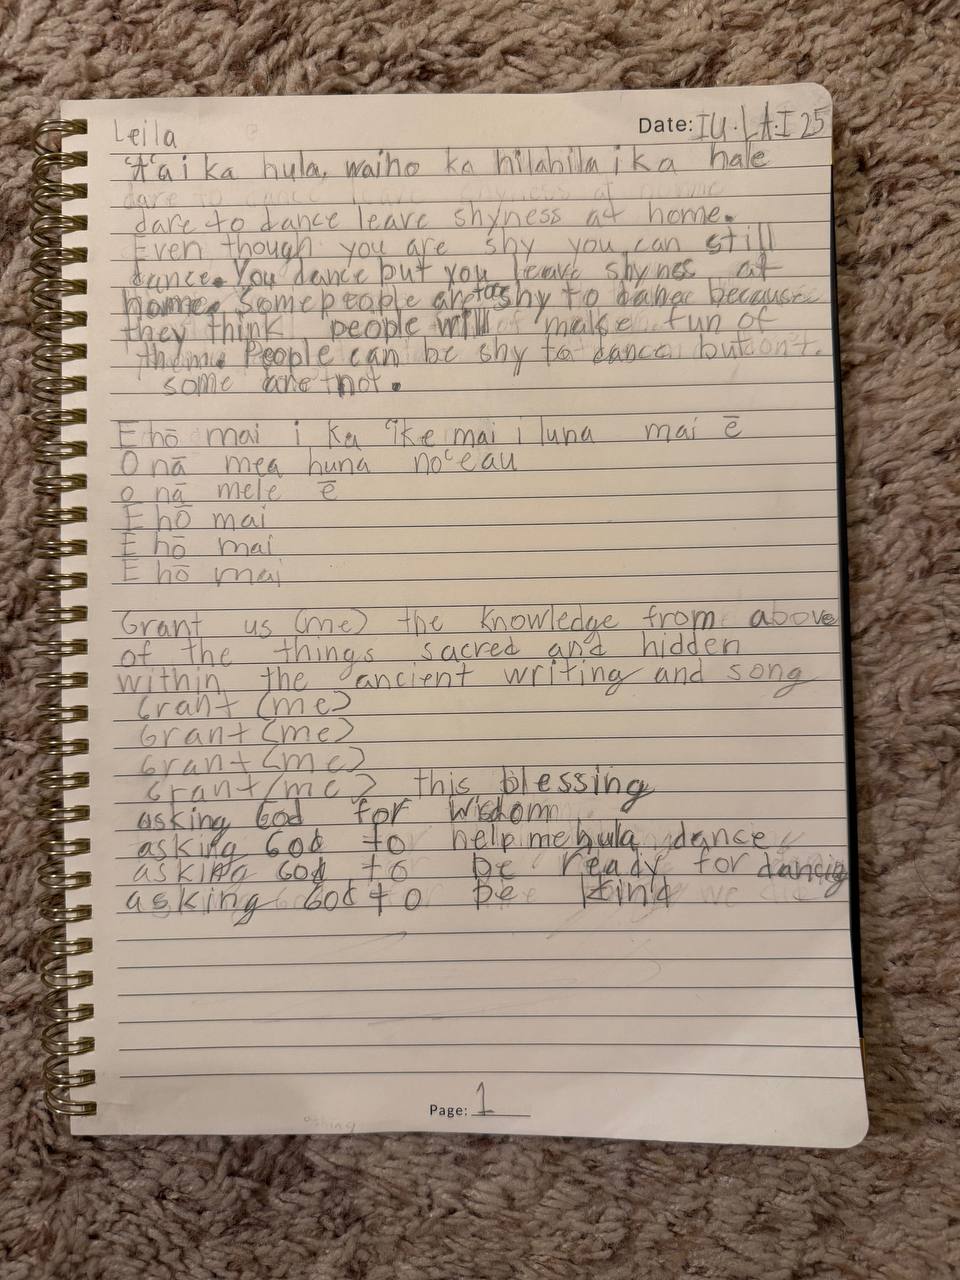 Leila
Date: IU.LA.I 25
'A'a i ka hula, waiho ka hilahila i ka hale
dare to dance leave shyness at home.
Even though you are shy you can still
dance. You dance but you leave shynes at
home. Some people are too shy to dance because
they think people will make fun of
them. People can be shy to dance but
some are not.
E hō mai i ka ʻike mai i luna mai ē
O nā mea huna noʻeau
o nā mele ē
E hō mai
E hō mai
E hō mai
Grant us (me) the knowledge from above
of the things sacred and hidden
within the ancient writing and song
Grant (me)
Grant (me)
Grant (me)
Grant (me) this blessing
asking God for wisdom
asking God to help me hula dance
asking God to be ready for dancig
asking God to be kind
Page: 1